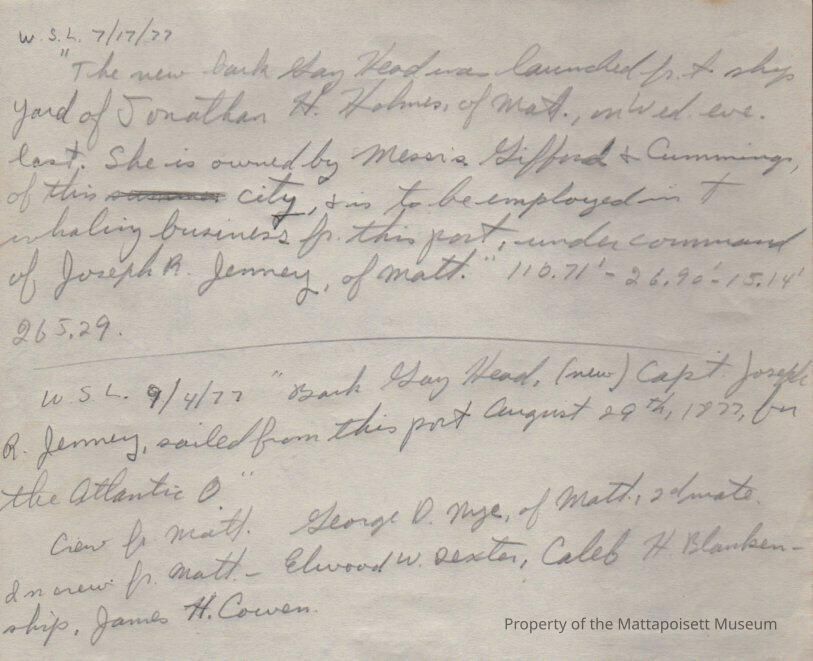 W.S.L. 7/17/77
"The new bark Gay Head was launched fr. t ship
yard of Jonathan H. Holmes, of Matt., on Wed. eve.
last. She is owned by Messrs Gifford & Cummings,
of this city, & is to be employed in t
whaling business fr. this port, under command
of Joseph R. Jenney, of Matt." 110.71' - 26.90' - 15.14'
265.29.
W.S.L. 9/4/77 "Bark Gay Head, (new) Capt. Joseph
R. Jenney, sailed from this port August 29th, 1877, for
the Atlantic O"
Crew fr. Matt. George D. Nye, of Matt., 2d mate.
In crew fr. Matt. - Elwood W. Dexter, Caleb H Blanken-
ship, James H. Cowen.
Property of the Mattapoisett Museum